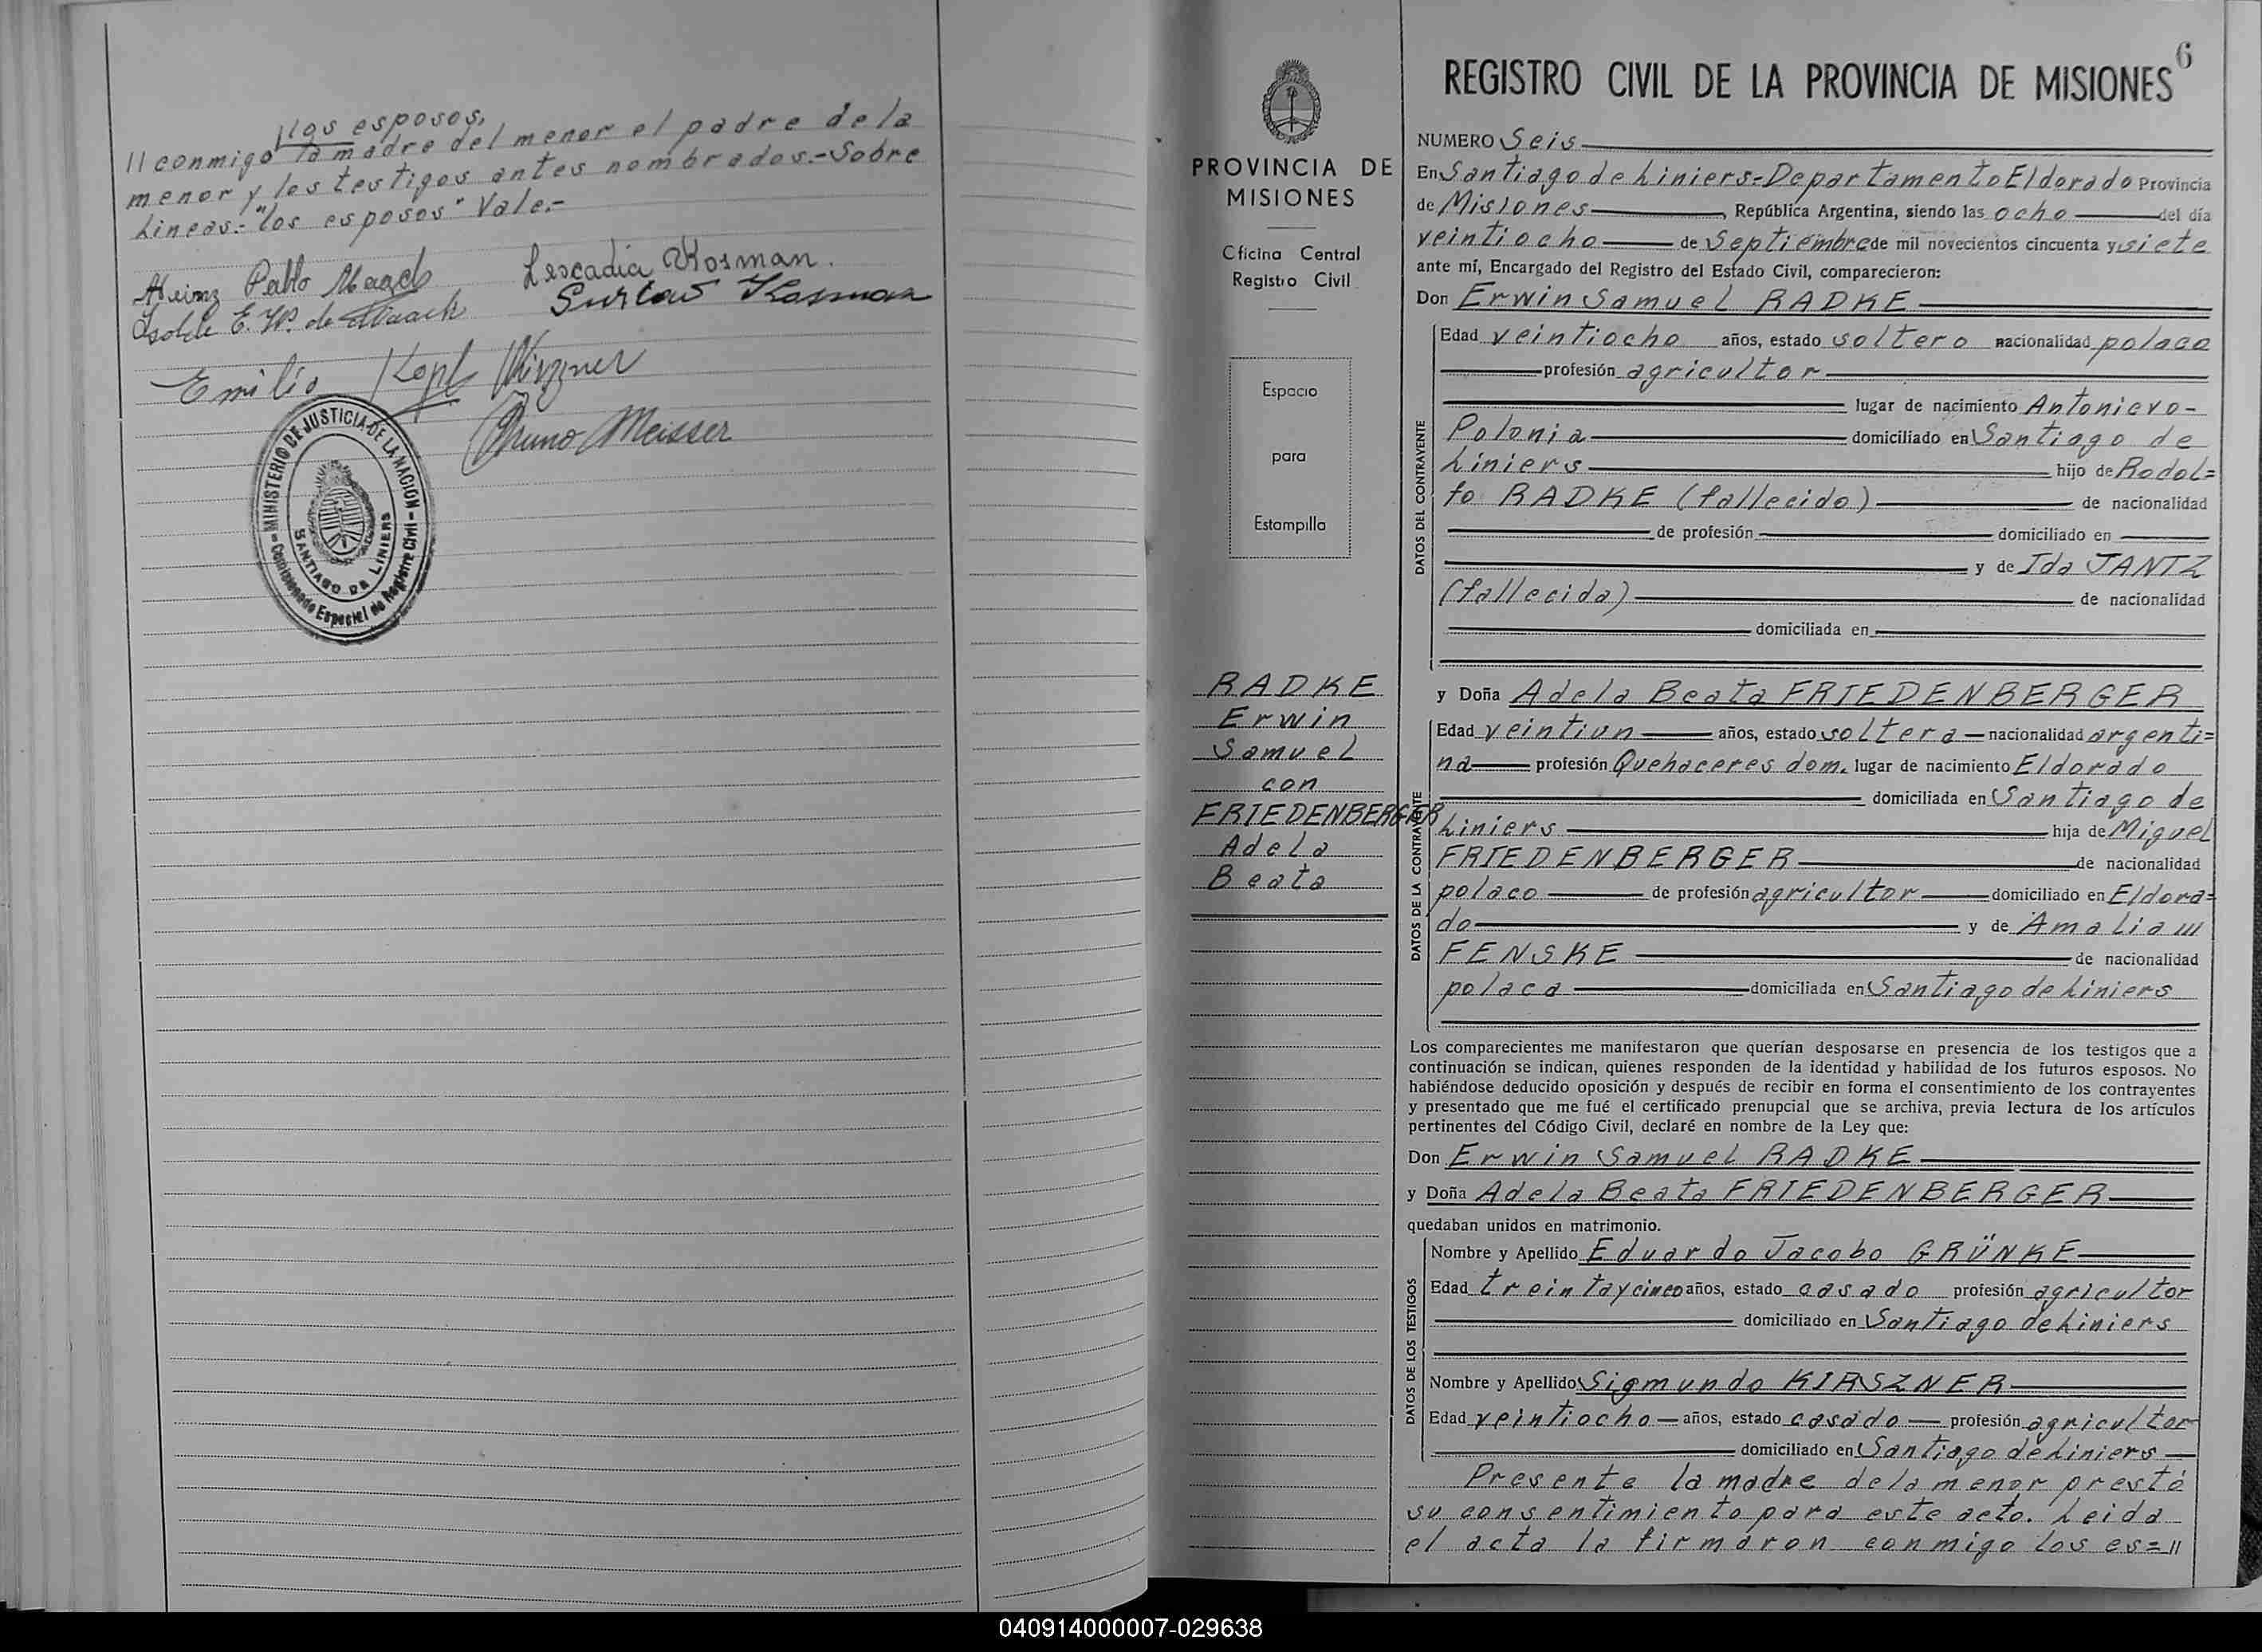 los esposos,
// conmigo la madre del menor el padre de la
menor y los testigos antes nombrados.- Sobre
Lineas.- "los esposos" Vale.-
Heinz Pablo
Leocadia Kosman.
Isolde E. W. de
Gustav Kosman
Emilio Kopf Kirszner
Bruno Meisser
MINISTERIO DE JUSTICIA DE LA NACION
Comisionado Especial de Registro Civil
SANTIAGO DE LINIERS
6
PROVINCIA DE
MISIONES
Oficina Central
Registro Civil
Espacio
para
Estampilla
RADKE
Erwin
Samuel
con
FRIEDENBERGER
Adela
Beata
REGISTRO CIVIL DE LA PROVINCIA DE MISIONES
NUMERO Seis
En Santiago de Liniers-Departamento Eldorado Provincia
de Misiones, República Argentina, siendo las ocho del día
veintiocho de Septiembre de mil novecientos cincuenta y siete
ante mí, Encargado del Registro del Estado Civil, comparecieron:
Don Erwin Samuel RADKE
DATOS DEL CONTRAYENTE
Edad veintiocho años, estado soltero nacionalidad polaco
profesión agricultor
lugar de nacimiento Antonievo-
Polonia domiciliado en Santiago de
Liniers hijo de Rodol=
fo RADKE (fallecido) de nacionalidad
de profesión domiciliado en
y de Ida JANTZ
(fallecida) de nacionalidad
domiciliada en
y Doña Adela Beata FRIEDENBERGER
DATOS DE LA CONTRAYENTE
Edad veintiun años, estado soltera nacionalidad argenti=
na profesión Quehaceres dom. lugar de nacimiento Eldorado
domiciliada en Santiago de
Liniers hija de Miguel
FRIEDENBERGER de nacionalidad
polaco de profesión agricultor domiciliado en Eldora=
do y de Amalia
FENSKE de nacionalidad
polaca domiciliada en Santiago de Liniers
Los comparecientes me manifestaron que querían desposarse en presencia de los testigos que a
continuación se indican, quienes responden de la identidad y habilidad de los futuros esposos. No
habiéndose deducido oposición y después de recibir en forma el consentimiento de los contrayentes
y presentado que me fué el certificado prenupcial que se archiva, previa lectura de los artículos
pertinentes del Código Civil, declaré en nombre de la Ley que:
Don Erwin Samuel RADKE
y Doña Adela Beata FRIEDENBERGER
quedaban unidos en matrimonio.
DATOS DE LOS TESTIGOS
Nombre y Apellido Eduardo Jacobo GRÜNKE
Edad treinta y cinco años, estado casado profesión agricultor
domiciliado en Santiago de Liniers
Nombre y Apellido Sigmundo KIRSZNER
Edad veintiocho años, estado casado profesión agricultor
domiciliado en Santiago de Liniers
Presente la madre de la menor prestó
su consentimiento para este acto. Leida
el acta la firmaron conmigo los es= //
040914000007-029638